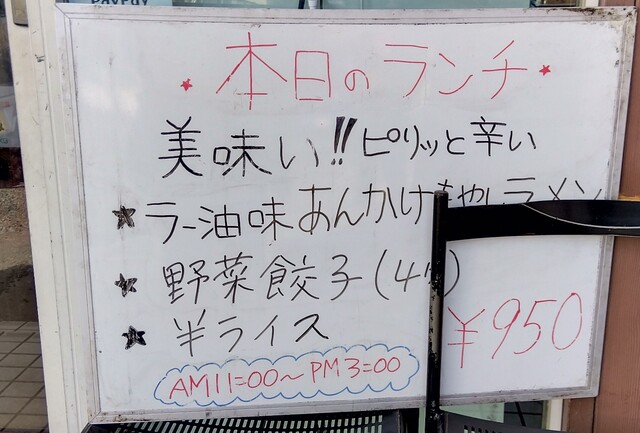 本日のランチ
美味い!! ピリッと辛い
★ラー油味あんかけもやしラーメン
★野菜餃子(4ケ)
★半ライス
¥950
AM11=00~PM3=00